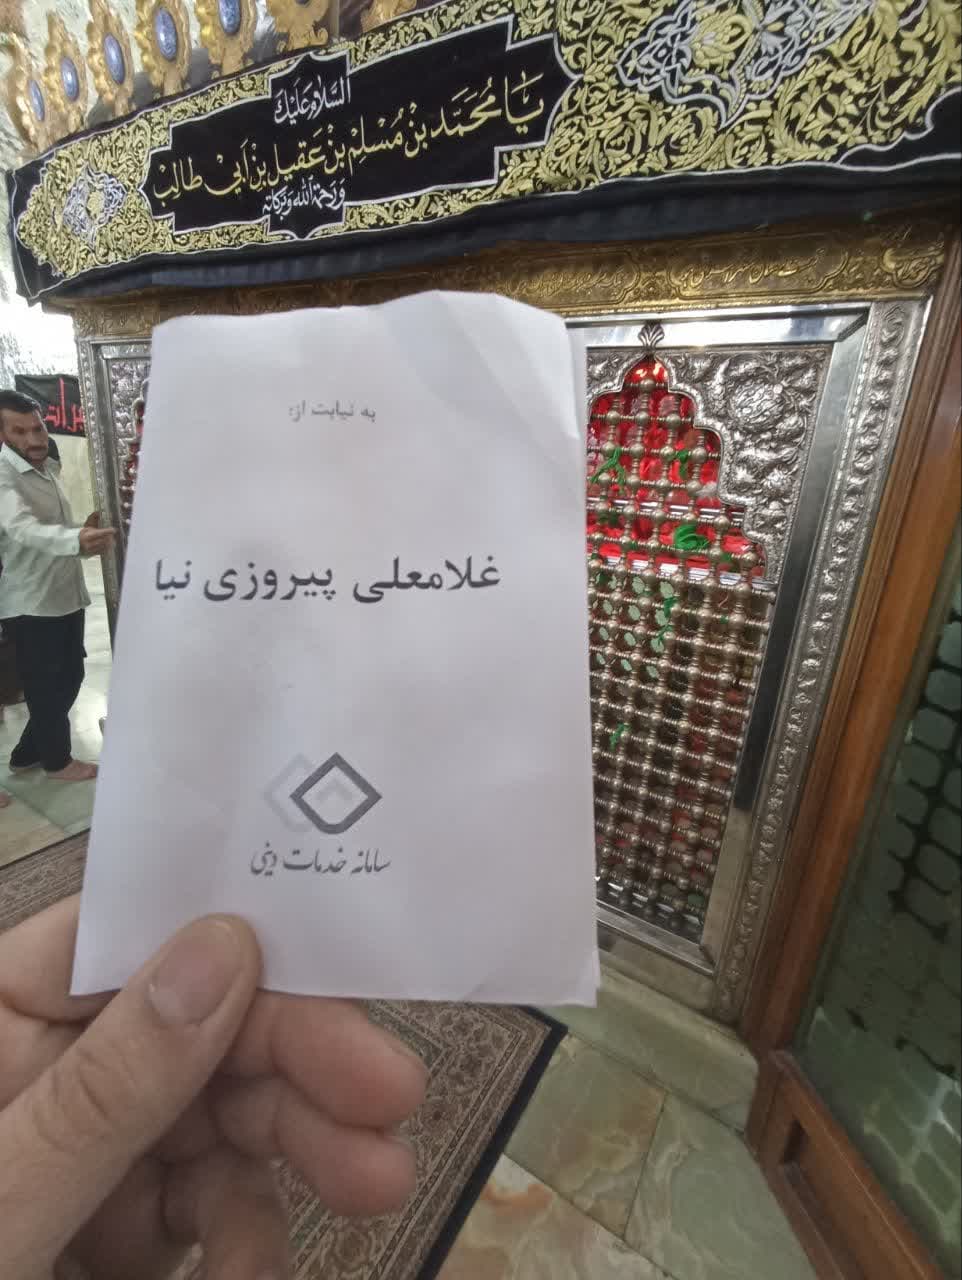 السلام علیک
یا محمد بن مسلم بن عقیل بن ابی طالب
ورحمة الله وبرکاته
به نیابت از:
غلامعلی پیروزی نیا
سامانه خدمات دینی